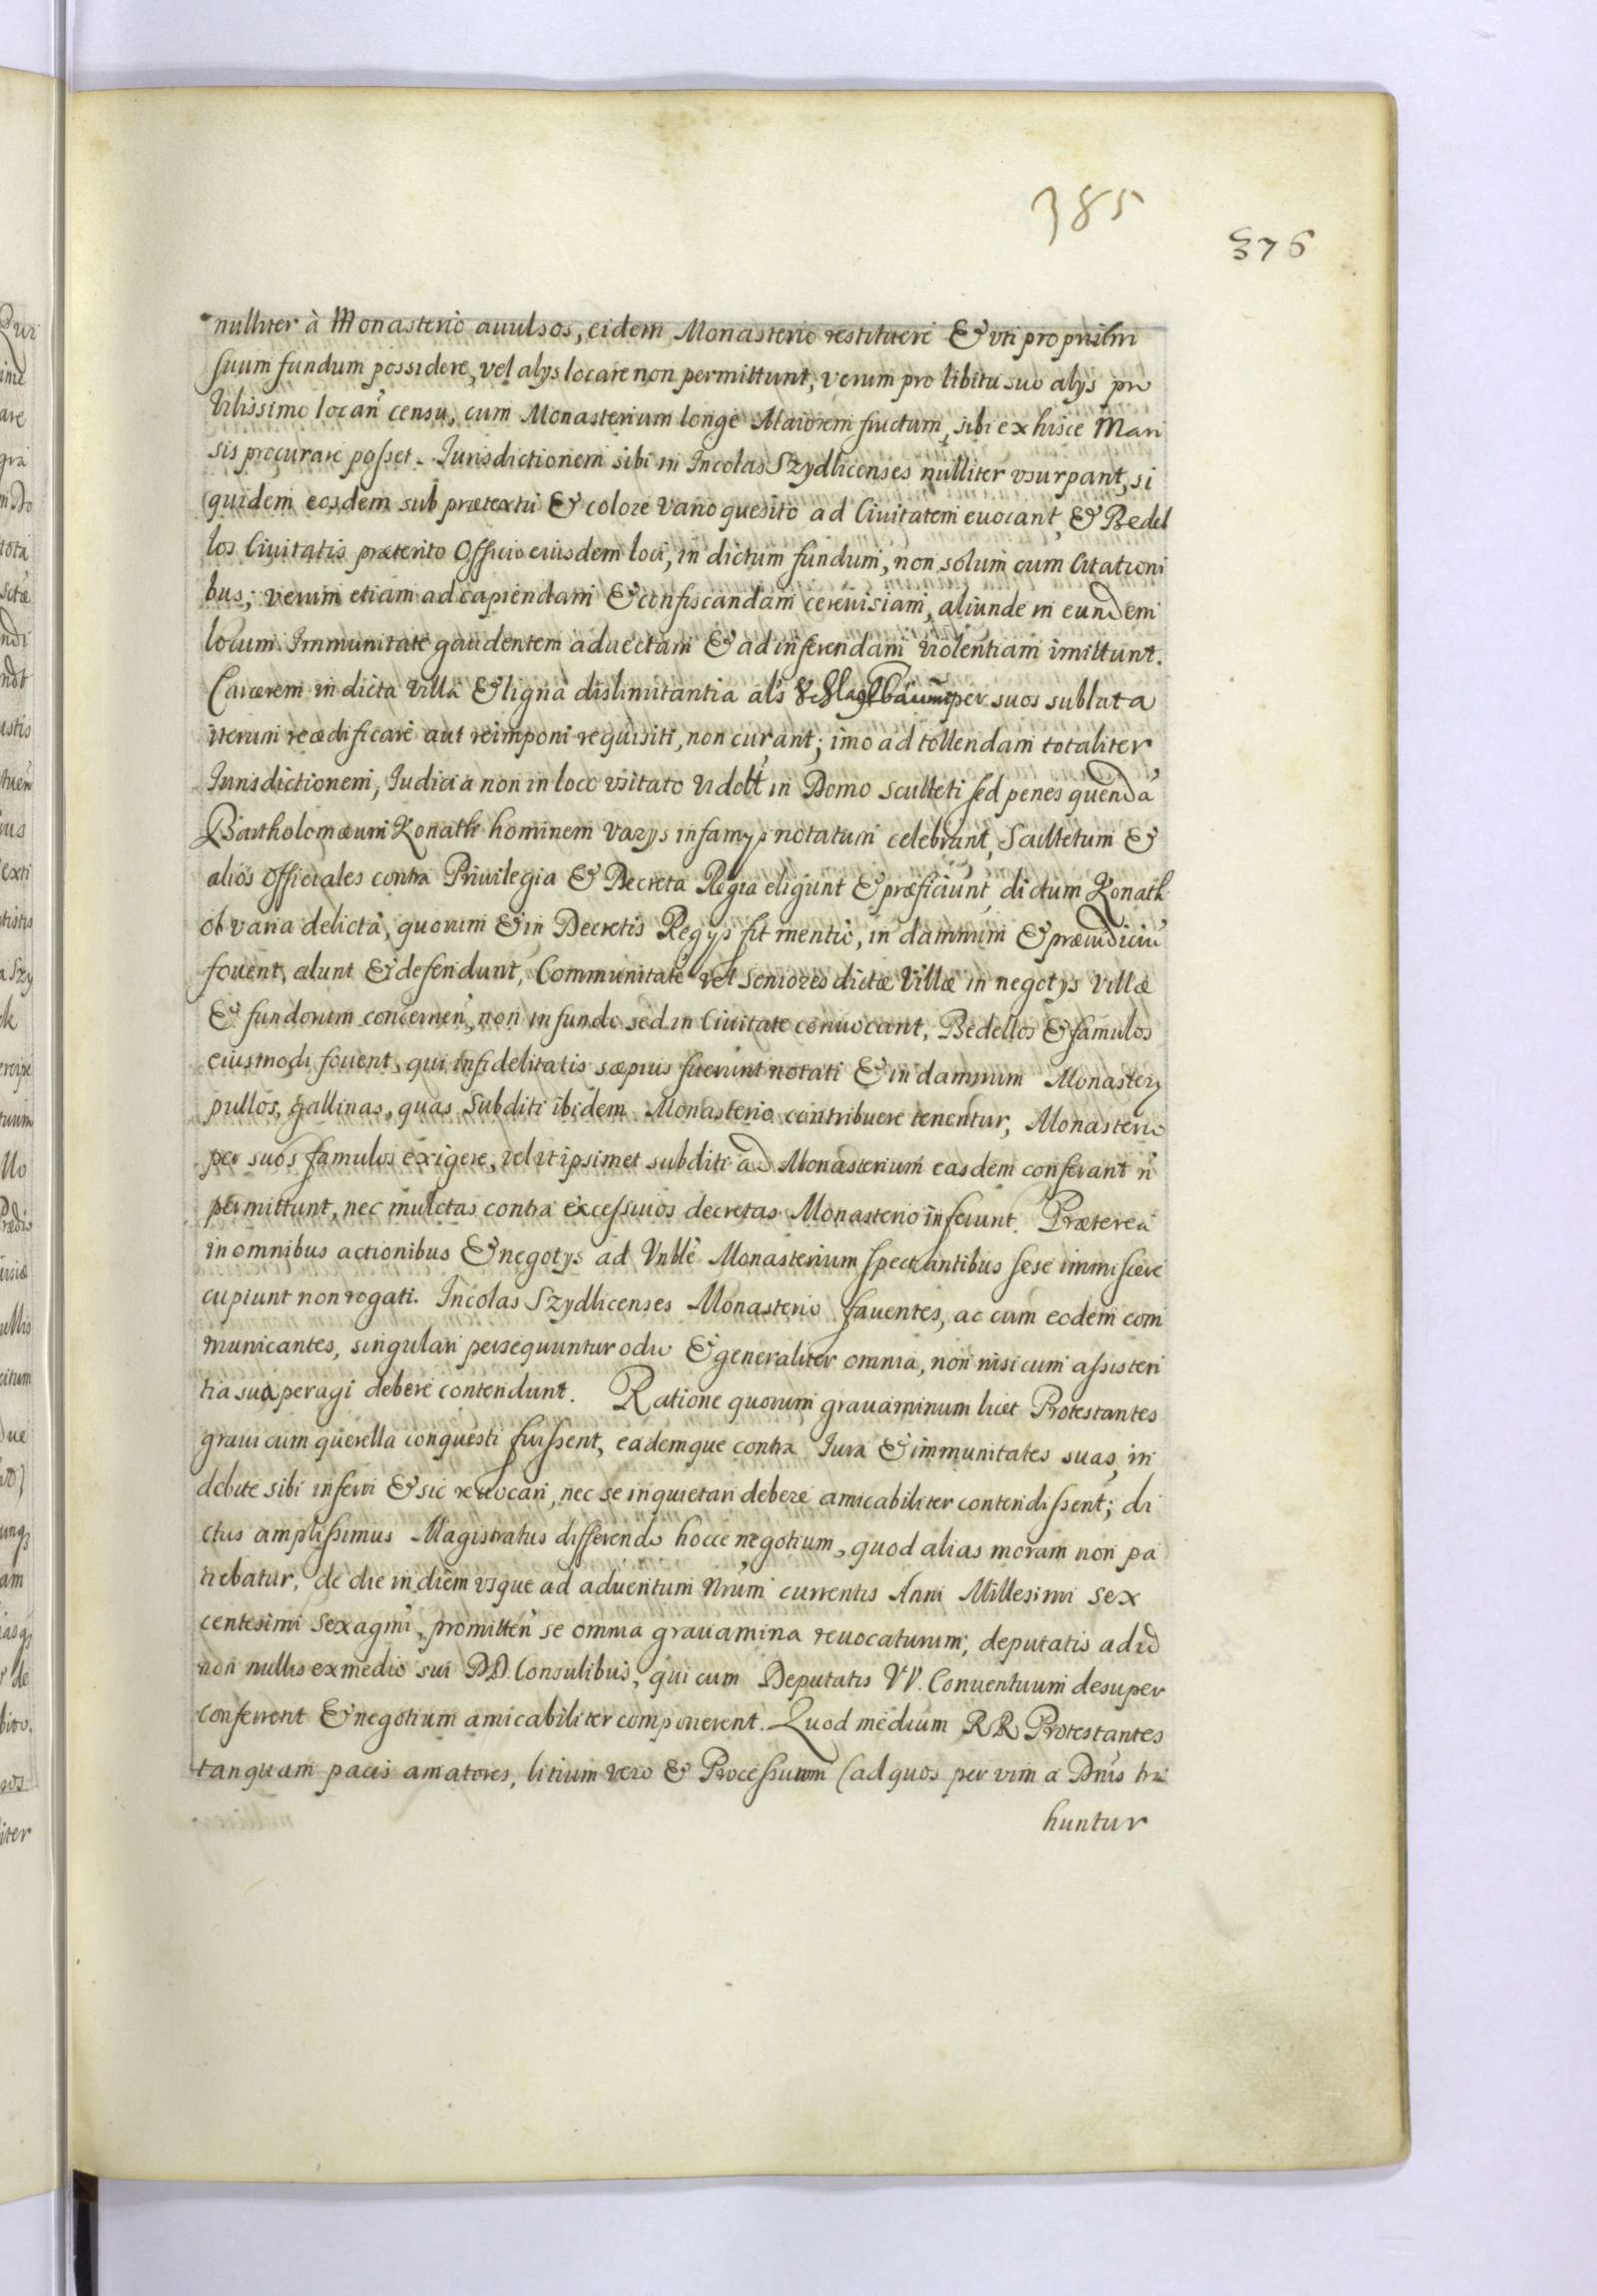 385
376
nulliter à Monasterio auulsos, eidem Monasterio restituere & vti proprium
suum fundum possidere, vel alys locare non permittunt, verum pro libitu suo alys pro
Vilissimo locan̄ censu, cum Monasterium longe Maiorem fructum, sibi ex hisce Man
sis procurare posset. Jurisdictionem sibi in Incolas Szydlicenses nulliter vsurpant, si
quidem eosdem sub prætextu & colore vano quesito ad Ciuitatem euocant, & Bedel
los Ciuitatis præterito Officio eiusdem loci, in dictum fundum, non solum cum Citationi
bus, verum etiam ad capiendam & confiscandam cereuisiam, aliunde in eundem
locum Immunitate gaudentem aduectam & ad inferendam violentiam imittunt.
Carcerem in dicta villa & ligna dislimitantia als Schlagbaum per suos sublata
iterum reædificare aut reimponi requisiti, non curant; imo ad tollendam totaliter
Jurisdictionem, Judicia non in loco vsitato vidlt in Domo sculteti sed penes quendā
Bartholomæum Konath hominem varys infamys notatum celebrant, Scultetum &
alios Officiales contra Priuilegia & Decreta Regia eligunt & præficiunt, dictum Konath
ob varia delicta, quorum & in Decretis Regys fit mentio, in damnum & præiudiciū
fouent, alunt & defendunt, Communitatē vel seniores dictæ Villæ in negotys Villæ
& fundorum concernen̄, non in fundo sed in Ciuitate conuocant, Bedellos & famulos
eiusmodi fouent, qui infidelitatis sæpius fuerunt notati & in damnum Monastery
pullos, gallinas, quas Subditi ibidem Monasterio contribuere tenentur, Monasterio
per suos famulos exigere, vel vt ipsimet subditi ad Monasterium easdem conferant n̄
permittunt, nec mulctas contra excessiuos decretas Monasterio inferunt. Præterea
in omnibus actionibus & negotys ad Vnble Monasterium spectantibus sese immiscere
cupiunt non rogati. Incolas Szydlicenses Monasterio fauentes, ac cum eodem com
municantes, singulari persequuntur odio & generaliter omnia, non nisi cum assisten
tia sua peragi debere contendunt. Ratione quorum grauaminum licet Protestantes
graui cum querella conquesti fuissent, eademque contra Jura & immunitates suas, in
debite sibi inferri & sic reuocari, nec se inquietari debere amicabiliter contendissent; di
ctus amplissimus Magistratus differendo hocce negotium, quod alias moram non pa
tiebatur, de die in diem vsque ad aduentum Nrum currentis Anni Millesimi sex
centesimi sexagmi, promitten̄ se omnia grauamina reuocaturum; deputatis ad id
non nullis ex medio sui DD. Consulibus, qui cum Deputatis VV. Conuentuum desuper
conferrent & negotium amicabiliter componerent. Quod medium RR Protestantes
tanquam pacis amatores, litium vero & Processuum (ad quos per vim a Dnis tra
huntur